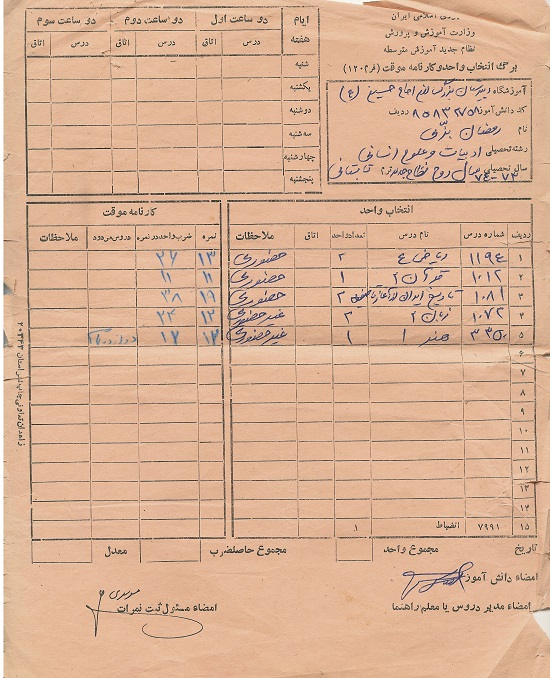 اسلامی ایران
وزارت آموزش و پرورش
نظام جدید آموزش متوسطه
برگ انتخاب واحد و کارنامه موقت (فرم ۱۲۰)
آموزشگاه دبیرستان بزرگسالان امام حسین (ع)
کد دانش آموز ۸۵۸۳۲۷۵۸ ردیف
نام رمضان بزی
رشته تحصیلی ادبیات و علوم انسانی
سال تحصیلی ۷۳-۷۴ سال دوم نظام جدید ترم تابستانی
ایام هفته
دو ساعت اول
دو ساعت دوم
دو ساعت سوم
درس اتاق درس اتاق درس اتاق
شنبه
یکشنبه
دوشنبه
سه شنبه
چهارشنبه
پنجشنبه
انتخاب واحد
کارنامه موقت
ردیف شماره درس نام درس تعداد واحد اتاق ملاحظات نمره ضرب واحد در نمره دروس مردود ملاحظات
۱ ۱۱۹۴ ریاضی ۴ ۲ حضوری ۱۳ ۲۶
۲ ۱۰۱۲ قرآن ۲ ۱ حضوری ۱۱ ۱۱
۳ ۱۰۸۱ تاریخ ایران از آغاز تا صفویه ۲ حضوری ۱۹ ۳۸
۴ ۱۰۷۲ زبان ۲ ۲ غیر حضوری ۱۲ ۲۴
۵ ۳۳۵۰ هنر ۱ ۱ غیر حضوری ۱۲ ۱۲ دوازده
۶
۷
۸
۹
۱۰
۱۱
۱۲
۱۳
۱۴
۱۵ ۷۹۹۱ انضباط ۱
تاریخ مجموع واحد مجموع حاصلضرب معدل
امضاء دانش آموز
امضاء مدیر دروس یا معلم راهنما
امضاء مسئول ثبت نمرات